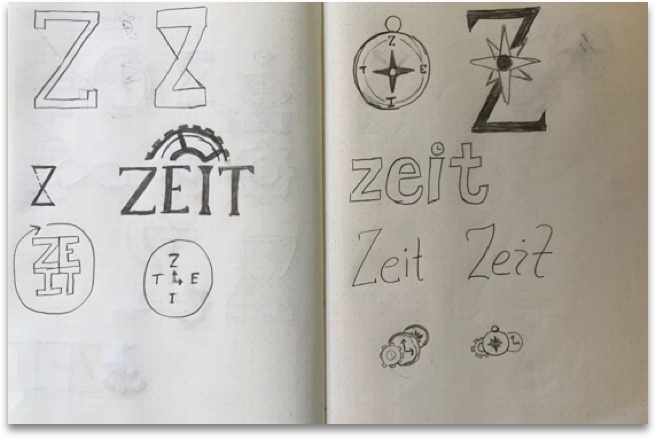 Z Z
Z
ZEIT
ZE
IT
Z
T E
I
Z
T E
I
Z
zeit
Zeit Zeit